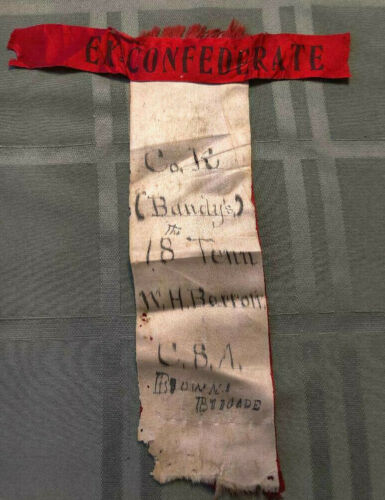 EX CONFEDERATE
Co. K
(Bandy's)
The
18 Tenn
W.H. Barrott
C.S.A.
BROWNS
BRIGADE